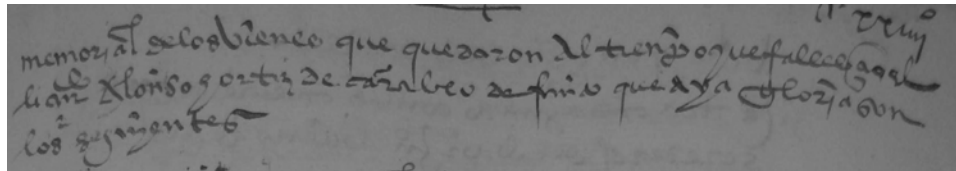 xxiiij
memorial de los bienes que quedaron al tienpo que fallescio el
licen Alonso gortiz de carabeo defunto que aya gloria son
los seguientes